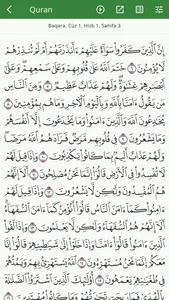 Quran
Baqara, Cüz 1, Hizb 1, Sahifa 3
إِنَّ الَّذِينَ كَفَرُوا سَوَاءٌ عَلَيْهِمْ ءَأَنذَرْتَهُمْ أَمْ لَمْ تُنذِرْهُمْ
لَا يُؤْمِنُونَ ٦ خَتَمَ اللَّهُ عَلَىٰ قُلُوبِهِمْ وَعَلَىٰ سَمْعِهِمْ وَعَلَىٰ
أَبْصَارِهِمْ غِشَاوَةٌ وَلَهُمْ عَذَابٌ عَظِيمٌ ٧ وَمِنَ النَّاسِ
مَن يَقُولُ ءَامَنَّا بِاللَّهِ وَبِالْيَوْمِ الْآخِرِ وَمَا هُم بِمُؤْمِنِينَ ٨
يُخَادِعُونَ اللَّهَ وَالَّذِينَ ءَامَنُوا وَمَا يَخْدَعُونَ إِلَّا أَنفُسَهُمْ
وَمَا يَشْعُرُونَ ٩ فِي قُلُوبِهِم مَّرَضٌ فَزَادَهُمُ اللَّهُ مَرَضًا
وَلَهُمْ عَذَابٌ أَلِيمٌ بِمَا كَانُوا يَكْذِبُونَ ١٠ وَإِذَا قِيلَ لَهُمْ
لَا تُفْسِدُوا فِي الْأَرْضِ قَالُوا إِنَّمَا نَحْنُ مُصْلِحُونَ ١١ أَلَا إِنَّهُمْ
هُمُ الْمُفْسِدُونَ وَلَٰكِن لَّا يَشْعُرُونَ ١٢ وَإِذَا قِيلَ لَهُمْ
ءَامِنُوا كَمَا ءَامَنَ النَّاسُ قَالُوا أَنُؤْمِنُ كَمَا ءَامَنَ السُّفَهَاءُ
أَلَا إِنَّهُمْ هُمُ السُّفَهَاءُ وَلَٰكِن لَّا يَعْلَمُونَ ١٣ وَإِذَا لَقُوا
الَّذِينَ ءَامَنُوا قَالُوا ءَامَنَّا وَإِذَا خَلَوْا إِلَىٰ شَيَاطِينِهِمْ قَالُوا
إِنَّا مَعَكُمْ إِنَّمَا نَحْنُ مُسْتَهْزِءُونَ ١٤ اللَّهُ يَسْتَهْزِئُ بِهِمْ وَيَمُدُّهُمْ
فِي طُغْيَانِهِمْ يَعْمَهُونَ ١٥ أُولَٰئِكَ الَّذِينَ اشْتَرَوُا الضَّلَالَةَ